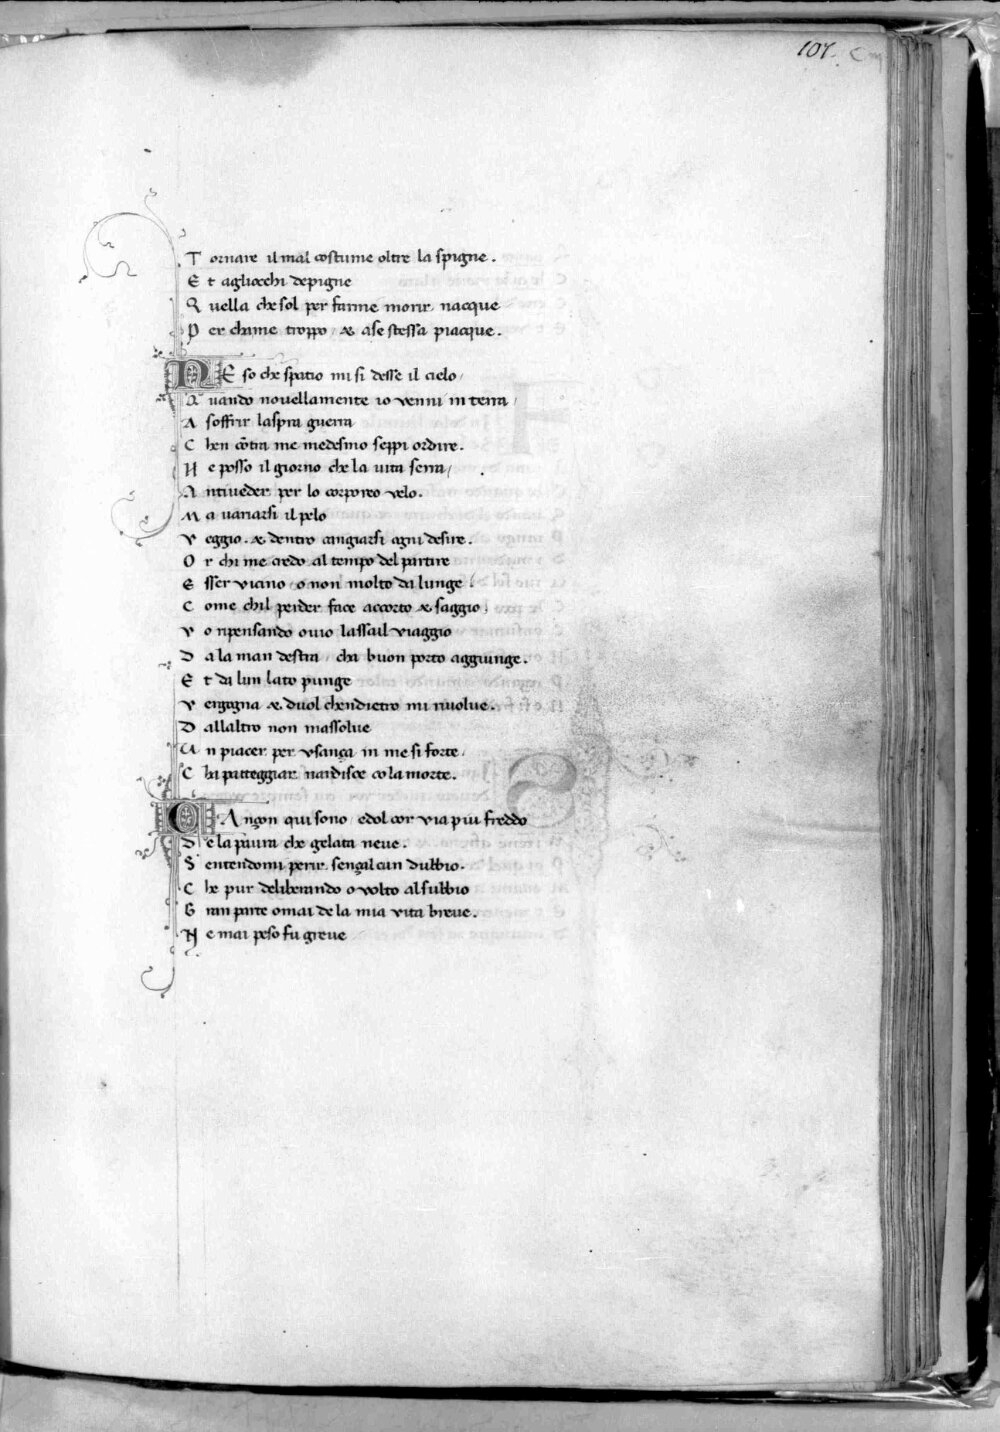 107.
T ornare il mal costume oltre la spigne.
E t agliocchi depigne
Q uella che sol per farme morir nacque
P er chame troppo & ase stessa piacque.
NE so che spatio mi si desse il cielo
Q uando nouellamente io venni in terra
A soffrir laspra guerra
C hen cōtra me medesmo seppi ordire.
N e posso il giorno che la uita serra
A ntiueder per lo corporeo velo.
M a uariarsi il pelo
V eggio. & dentro cangiarsi ogni desire.
O r chi me credo al tempo del partire
E sser vicino o non molto da lunge
C ome chil perder face accorto & saggio
V o ripensando ouio lassail viaggio
D a la man destra cha buon porto aggiunge.
E t da lun lato punge
V ergogna & duol chendietro mi riuolue.
D allaltro non massolue
U n piacer per vsança in me si forte
C ha patteggiar nardisce co la morte.
CAnçon qui sono edol cor via piu freddo
D e la paura che gelata neue.
S entendomi perir sençalcun dubbio.
C he pur deliberando o volto alsubbio
G ran parte omai de la mia vita breue.
N e mai peso fu greue